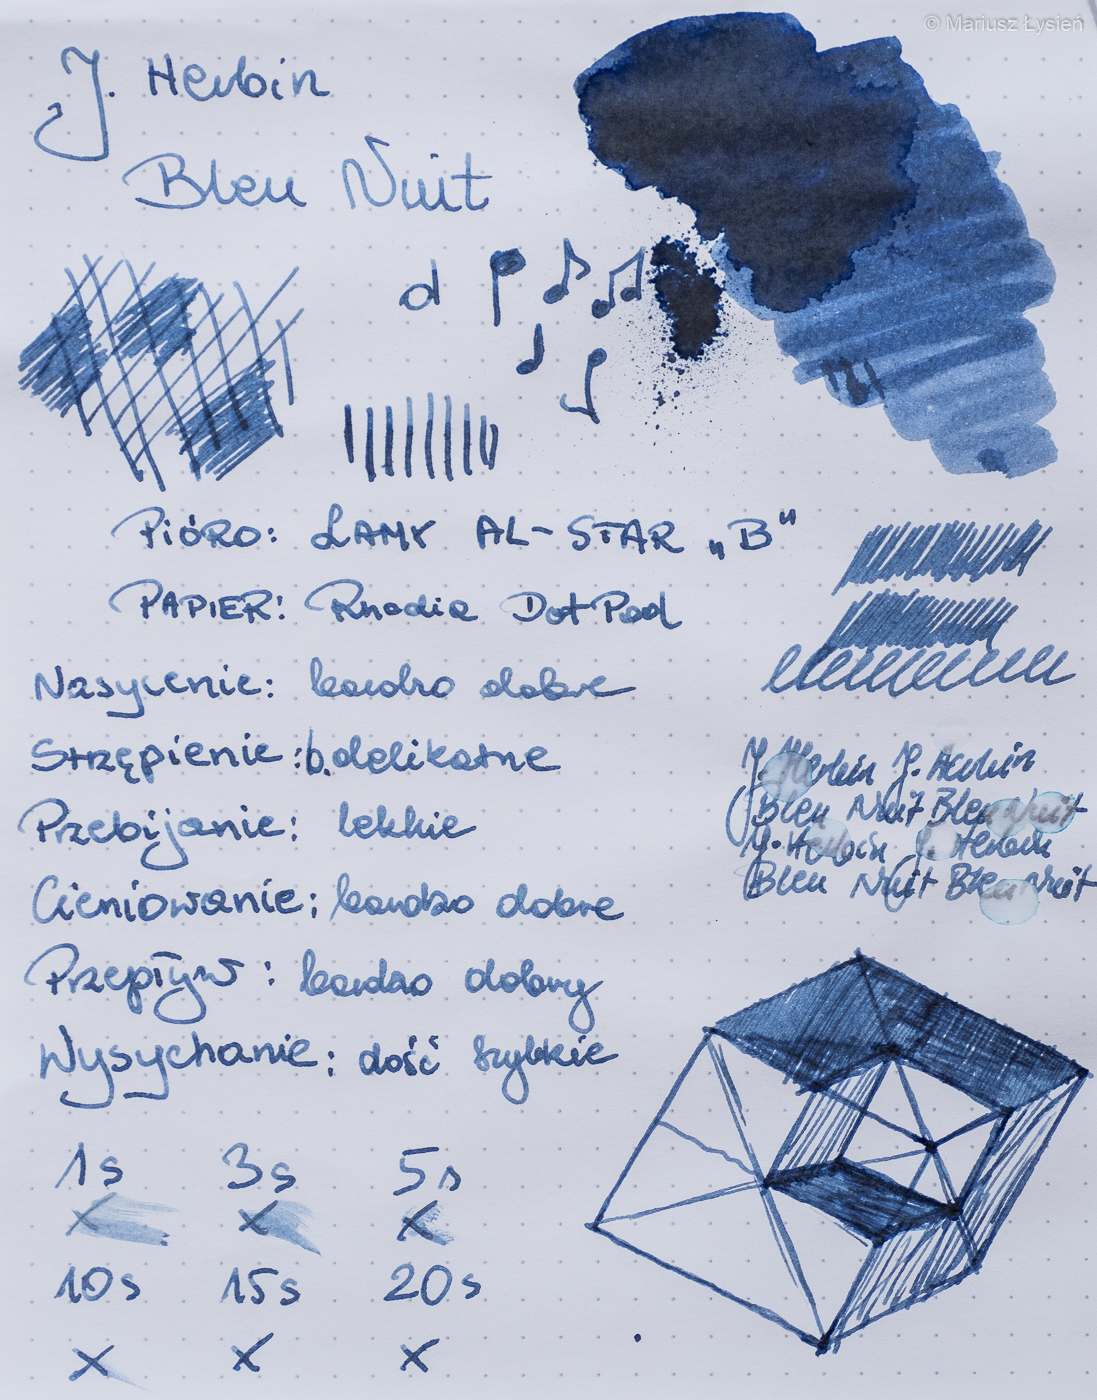 © Mariusz Łysień
J. Herbin
Bleu Nuit
PióRO: LAMY AL-STAR „B"
PAPIER: Rhodia DotPad
Nasycenie: bardzo dobre
Strzępienie: b. delikatne
Przebijanie: lekkie
Cieniowanie: bardzo dobre
Przepływ: bardzo dobry
Wysychanie: dość szybkie
J. Herbin J. Herbin
Bleu Nuit Bleu Nuit
J. Herbin J. Herbin
Bleu Nuit Bleu Nuit
1s 3s 5s
x x x
10s 15s 20s
x x x